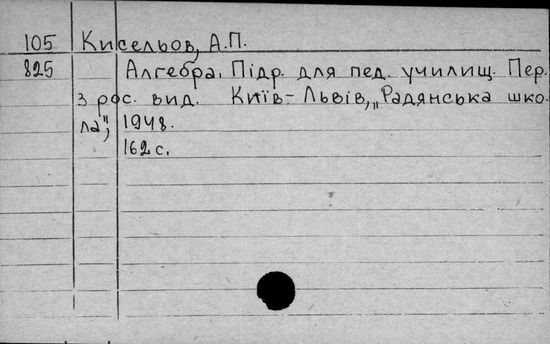 105 Кисельов, А.П.
825 Алгебра. Підр. для пед. училищ. Пер.
з рос. вид. Київ-Львів, „Радянська шко-
ла", 1948.
162 с.